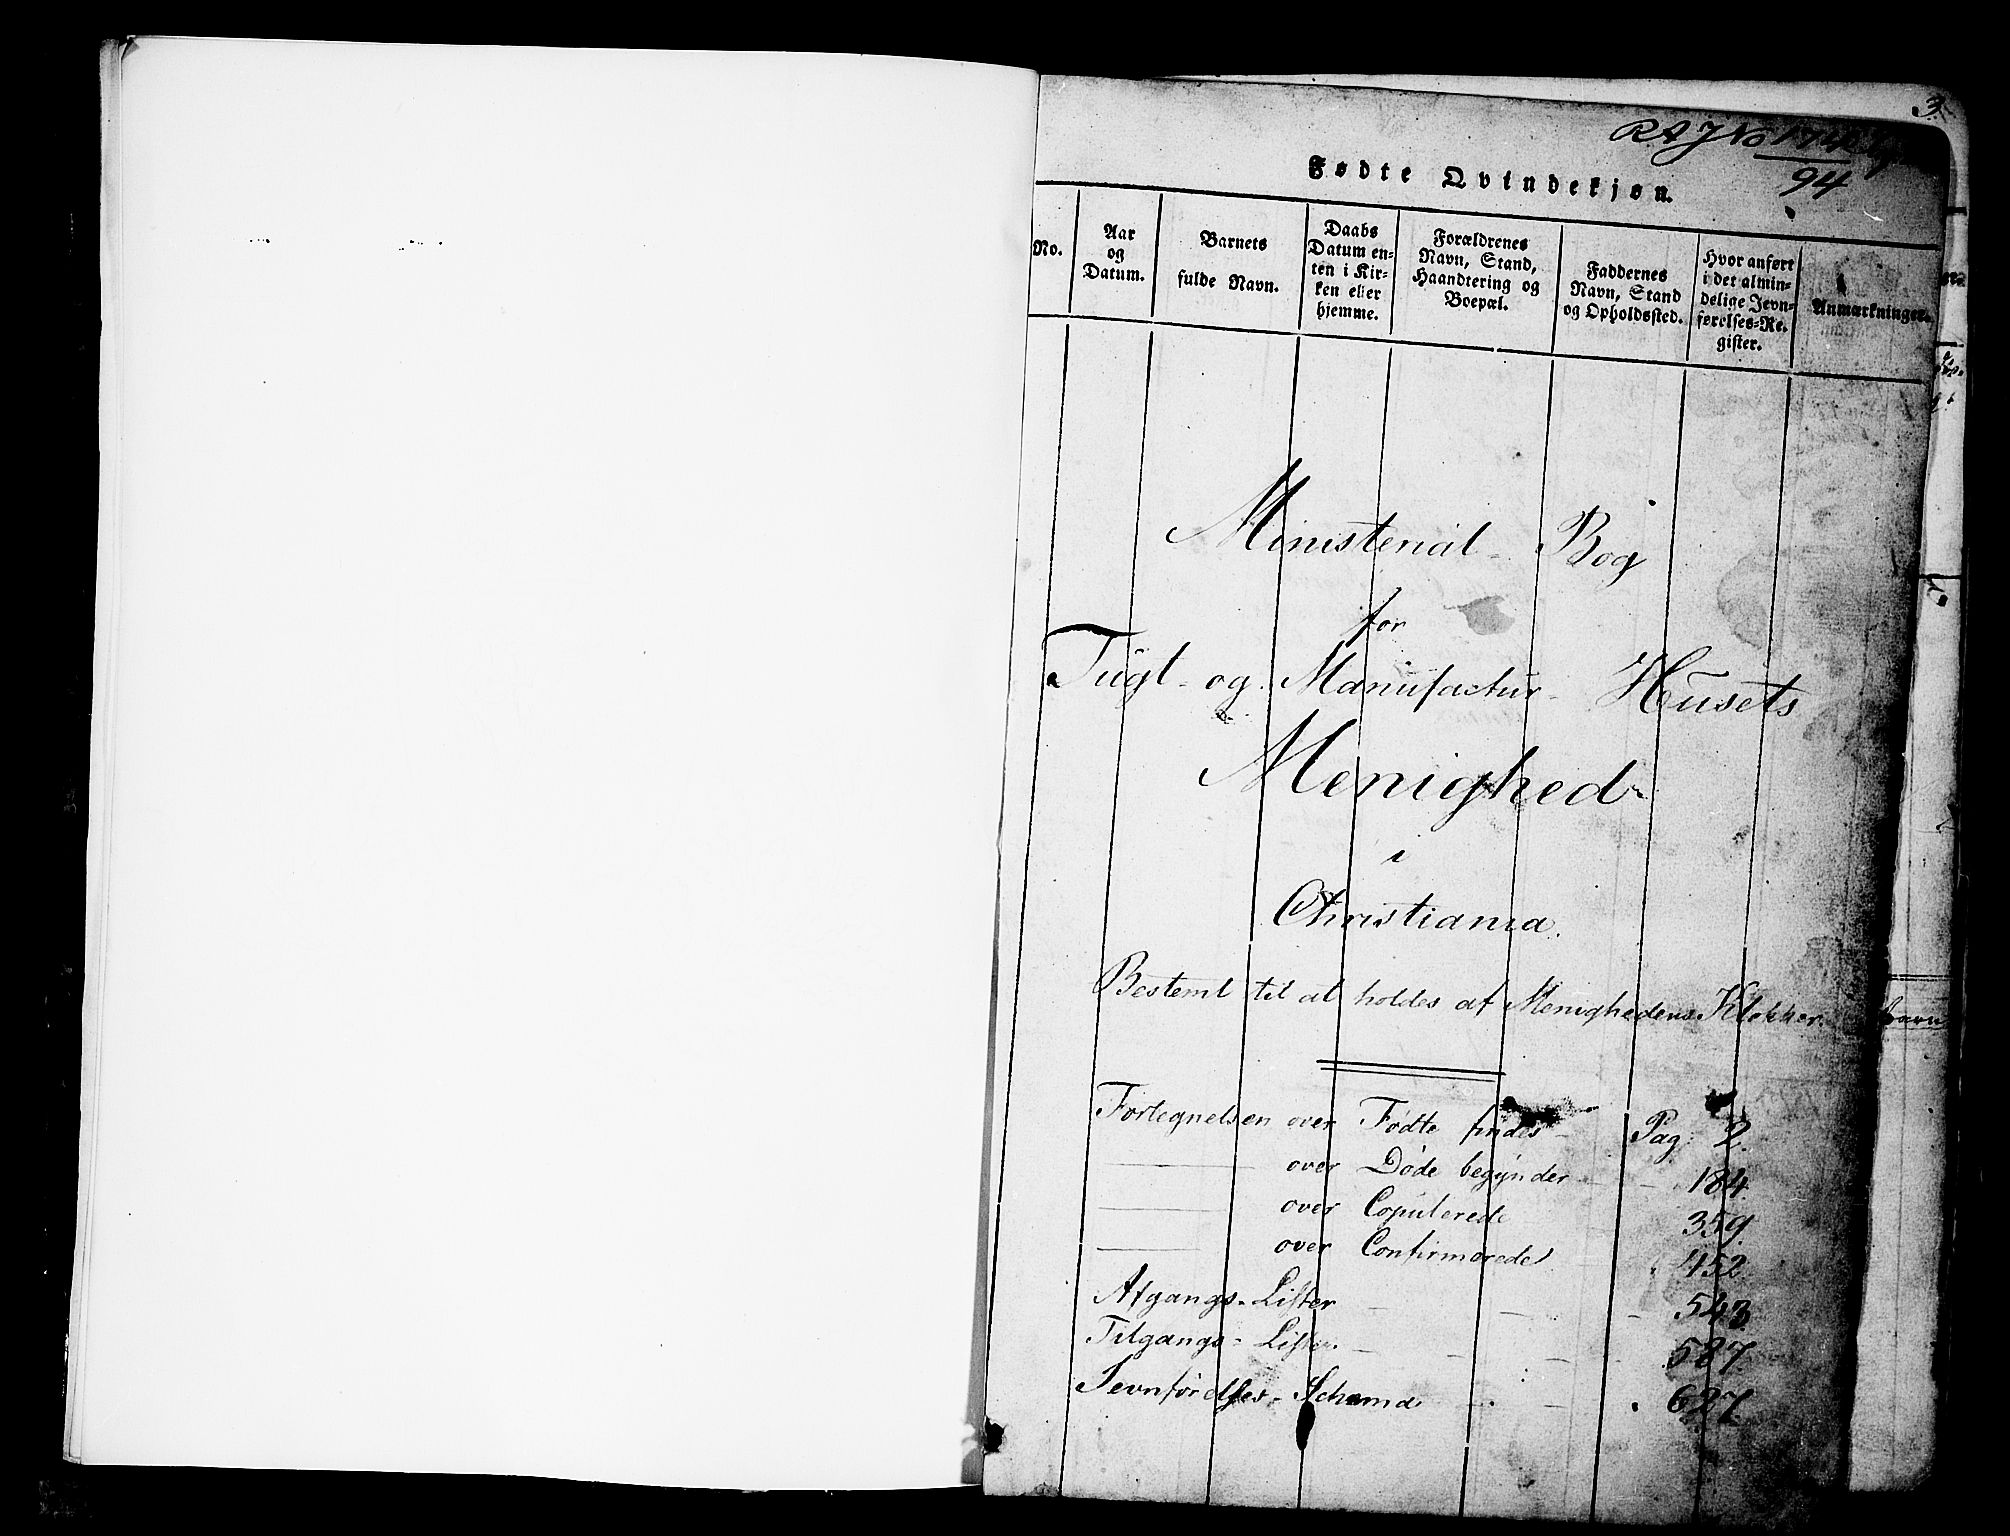 3.
RA J No 1742
94
Fødte Qvindekjøn.
No.
Aar
og
Datum.
Barnets
fulde Navn.
Daabs
Datum en-
ten i Kir-
ken eller
hjemme.
Forældrenes
Navn, Stand,
Haandtering og
Boepæl.
Faddernes
Navn, Stand
og Opholdssted.
Hvor anført
i det almin-
delige Jevn-
førelses-Re-
gister.
Anmærkninger.
Ministerial-Bog
for
Tugt- og Manufactur-Husets
Menighed
i
Christiania.
Bestemt til at holdes af Menighedens Klokker.
Fortegnelsen over Fødte findes Pag: 2.
over Døde begynder 184
over Copulerede 359
over Confirmerede 452
Afgangs-Lister 543
Tilgangs-Lister 587.
Jevnførelses-Schema 627